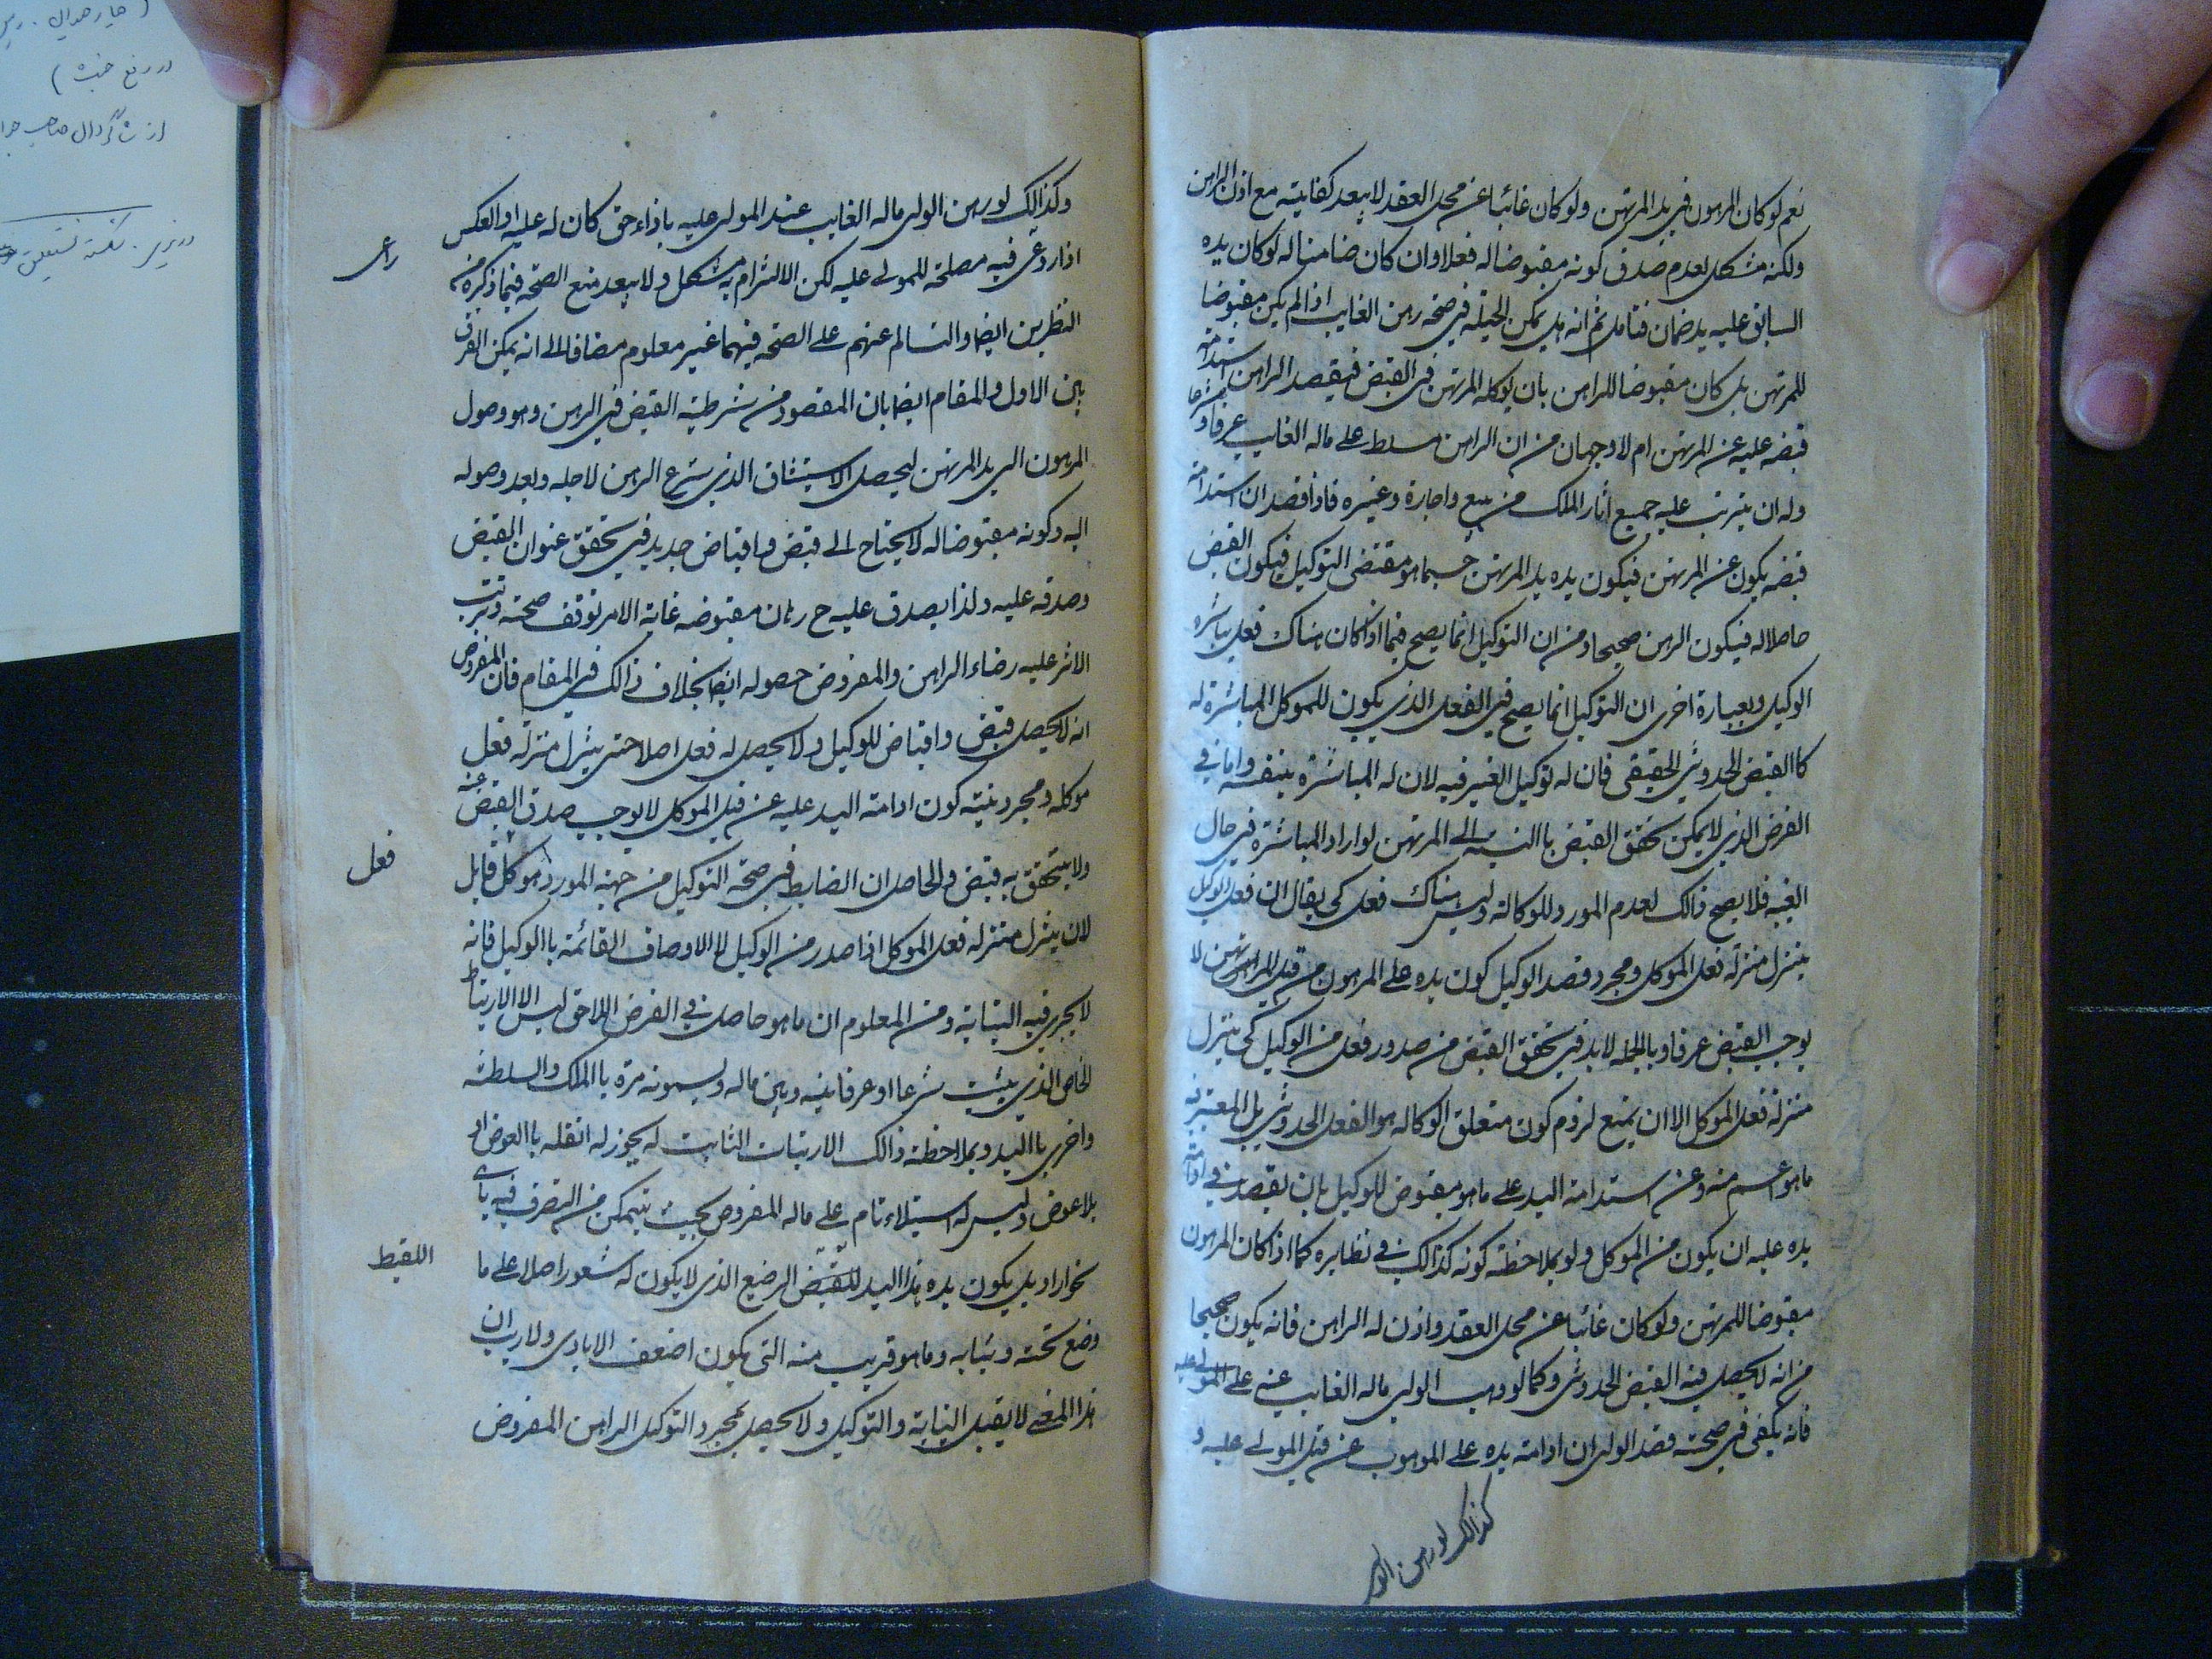 نعم لو كان المرهون فى يد المرتهن ولو كان غائبا عن محل العقد لا يبعد كفايته مع اذن الراهن
ولكنه مشكل لعدم صدق كونه مقبوضا له فعلا وان كان ضامنا له لو كان يده
السابق عليه يد ضمان فتامل ثم انه هل يمكن الحيلة فى صحة رهن الغايب اذا لم يكن مقبوضا
للمرتهن بل كان مقبوضا للراهن بان يوكله المرتهن فى القبض فيقصد الراهن استدامة
قبضه عليه عن المرتهن ام لا وجهان من ان الراهن مسلط على ماله الغايب عرفا و شرعا
وله ان يترتب عليه جميع اثار الملك من بيع واجارة وغيره فاذا قصد ان استدامة
قبضه يكون عن المرتهن فيكون يده يد المرتهن حسبما هو مقتضى التوكيل فيكون القبض
حاصلا له فيكون الرهن صحيحا ومن ان التوكيل انما يصح فيما اذا كان هناك فعل يباشره
الوكيل وبعبارة اخرى ان التوكيل انما يصح فى الفعل الذى يكون للموكل المباشرة له
كا القبض الحدوثى الحقيقى فان له توكيل الغير فيه لان له المباشرة بنفسه واما فى
الفرض الذى لا يمكن تحقق القبض با النسبة الى المرتهن لو اراد المباشرة فى حال
الغيبة فلا يصح ذالك لعدم المورد للوكالة وليس هناك فعل كى يقال ان فعل الوكيل
ينزل منزلة فعل الموكل ومجرد قصد الوكيل كون يده على المرهون من قبل المرتهن لا
يوجب القبض عرفا وبالجملة لا بد فى تحقق القبض من صدور فعل من الوكيل كى ينزل
منزلة فعل الموكل الا ان يمنع لزوم كون متعلق الوكالة هو الفعل الحدوثى بل المعتبر فيه
ما هو اعم منه وعن استدامة اليد على ما هو مقبوض للوكيل بان يقصد فى ادامة
يده عليه ان يكون من الموكل ولو بملاحظة كونه كذالك فى نظايره كما اذا كان المرهون
مقبوضا للمرتهن ولو كان غائبا عن محل العقد واذن له الراهن فانه يكون صحيحا
مع انه لا يحصل فيه القبض الحدوثى وكما لو وهب الولى ماله الغايب عنه على المولى عليه
فانه يكفى فى صحته قصد الولى ان ادامة يده على الموهوب عن قبل المولى عليه و
كذالك لو رهن الولى
وكذالك لو رهن الولى ماله الغايب عند المولى عليه باذاء حق كان له عليه او العكس
اذا روعى فيه مصلحة للمولى عليه لكن الالتزام به مشكل ولا يبعد منع الصحة فيما ذكره من
راعى
النظرين ايضا والتسالم عنهم على الصحة فيهما غير معلوم مضافا الى انه يمكن الفرق
بين الاول والمقام ايضا بان المقصود من شرطية القبض فى الرهن وهو وصول
المرهون الى يد المرتهن ليحصل الاستيثاق الذى شرع الرهن لاجله وبعد وصوله
اليه وكونه مقبوضا له لا يحتاج الى قبض واقباض جديد فى تحقق عنوان القبض
وصدقه عليه ولذا يصدق عليه ح رهان مقبوضه غاية الامر توقف صحته وترتب
الاثر عليه رضاء الراهن والمفروض حصوله ايضا بخلاف ذالك فى المقام فان المفروض
انه لا يحصل قبض واقباض للوكيل ولا يحصل له فعل اصلا حتى ينزل منزلة فعل
موكله ومجرد نيته كون ادامة اليد عليه عن قبل الموكل لا يوجب صدق القبض عنه
ولا يتحقق به قبض والحاصل ان الضابط فى صحة التوكيل من جهة المورد هو كل قابل
فعل
لان ينزل منزلة فعل الموكل اذا صدر من الوكيل لا الاوصاف القائمة با الوكيل فانه
لا يجرى فيه النيابة ومن المعلوم ان ما هو حاصل فى الفرض اللاحق ليس الا الارتباط
الخاص الذى يثبت شرعا او عرفا بينه وبين ماله ويسمونه مرة با الملك والسلطنة
واخرى با اليد وبملاحظة ذالك الارتباط الثابت له يجوز له انقله با العوض او
بلا عوض وليس له استيلاء تام على ماله المفروض بحيث يتمكن من التصرف فيه باى
نحو اراد بل يكون يده هذا اليد للقبض الرضيع الذى لا يكون له شعور اصلا على ما
اللقيط
وضع تحته وثيابه وما هو قريب منه التى يكون اضعف الايادى ولا ريب ان
هذا المعنى لا يقبل النيابة والتوكيل ولا يحصل بمجرد التوكيل الراهن المفروض